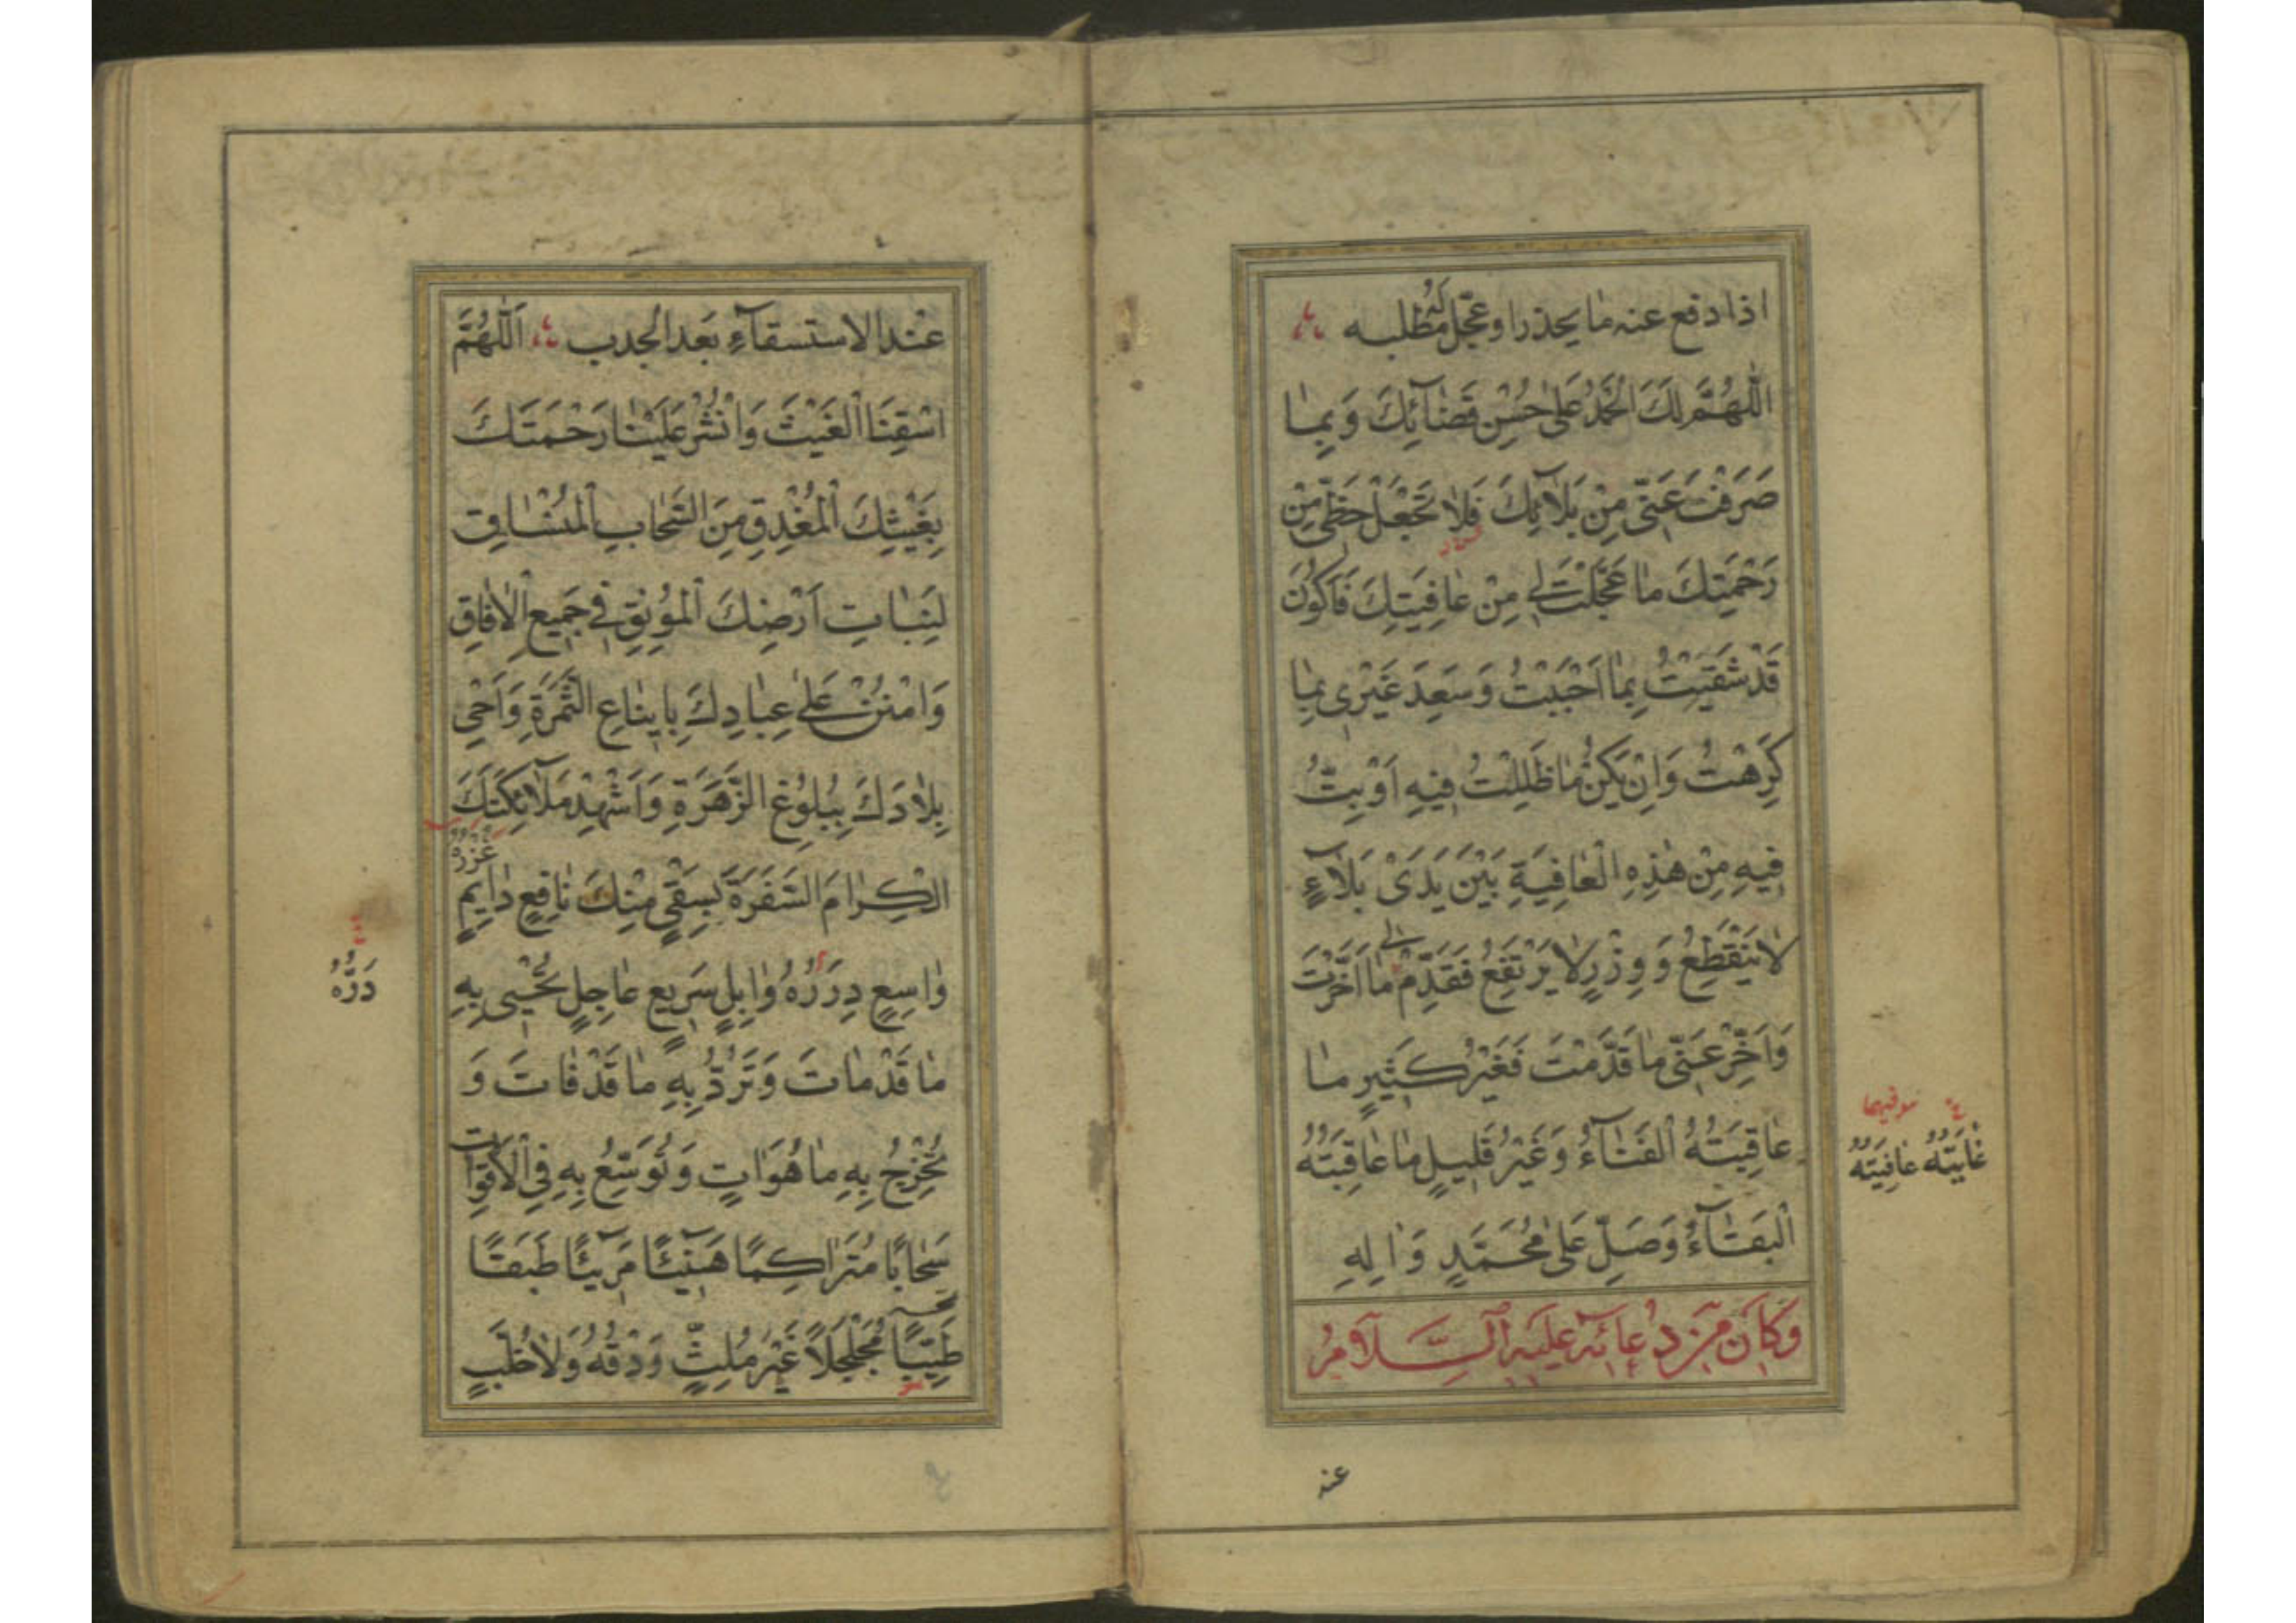 اذا دفع عنه ما يحذر او عجل له مطلبه
اَللّٰهُمَّ لَكَ الْحَمْدُ عَلٰى حُسْنِ قَضٰآئِكَ وَبِمٰا
صَرَفْتَ عَنّى مِنْ بَلآئِكَ فَلاٰ تَجْعَلْ حَظّى مِنْ
رَحْمَتِكَ مٰا عَجَّلْتَ لى مِنْ عٰافِيَتِكَ فَاَكُونَ
قَدْ شَقيتُ بِمٰا اَحْبَبْتُ وَسَعِدَ غَيْرى بِمٰا
كَرِهْتُ وَاِنْ يَكُنْ مٰا ظَلِلْتُ فيهِ اَوْ بِتُّ
فيهِ مِنْ هٰذِهِ الْعٰافِيَةِ بَيْنَ يَدَىْ بَلاٰءٍ
لاٰ يَنْقَطِعُ وَوِزْرٍ لاٰ يَرْتَفِعُ فَقَدِّمْ لى مٰا اَخَّرْتَ
وَاَخِّرْ عَنّى مٰا قَدَّمْتَ فَغَيْرُ كَثيرٍ مٰا
عٰاقِبَتُهُ الْفَنٰآءُ وَغَيْرُ قَليلٍ مٰا عٰاقِبَتُهُ
غٰايَتُهُ عٰافِيَتُهُ
الْبَقٰآءُ وَصَلِّ عَلٰى مُحَمَّدٍ وَاٰلِهِ
وَكَانَ مِنْ دُعَائِهِ عَلَيْهِ السَّلَامُ
عند
عند الاستسقآء بعد الجدب اَللّٰهُمَّ
اسْقِنَا الْغَيْثَ وَانْشُرْ عَلَيْنٰا رَحْمَتَكَ
بِغَيْثِكَ الْمُغْدِقِ مِنَ السَّحٰابِ الْمُنْسٰاقِ
لِنَبٰاتِ اَرْضِكَ الْمُونِقِ فى جَميعِ الْاٰفٰاقِ
وَامْنُنْ عَلٰى عِبٰادِكَ بِاينٰاعِ الثَّمَرَةِ وَاَحْىِ
بِلاٰدَكَ بِبُلُوغِ الزَّهَرَةِ وَاَشْهِدْ مَلاٰئِكَتَكَ
غُزْرُهُ
الْكِرٰامَ السَّفَرَةَ بِسَقْىٍ مِنْكَ نٰافِعٍ دٰايِمٍ
وٰاسِعٍ دِرَرُهُ وٰابِلٍ سَريعٍ عٰاجِلٍ تُحْيى بِهِ
دَرُّهُ
مٰا قَدْ مٰاتَ وَتَرُدُّ بِهِ مٰا قَدْ فٰاتَ وَ
تُخْرِجُ بِهِ مٰا هُوَ اٰتٍ وَتُوَسِّعُ بِهِ فِى الْاَقْوٰاتِ
سَحٰابًا مُتَرٰاكِمًا هَنيئًا مَريئًا طَبَقًا
طَيِّبًا مُجَلْجَلاً غَيْرَ مُلِثٍّ وَدْقُهُ وَلاٰ خُلَّبٍ